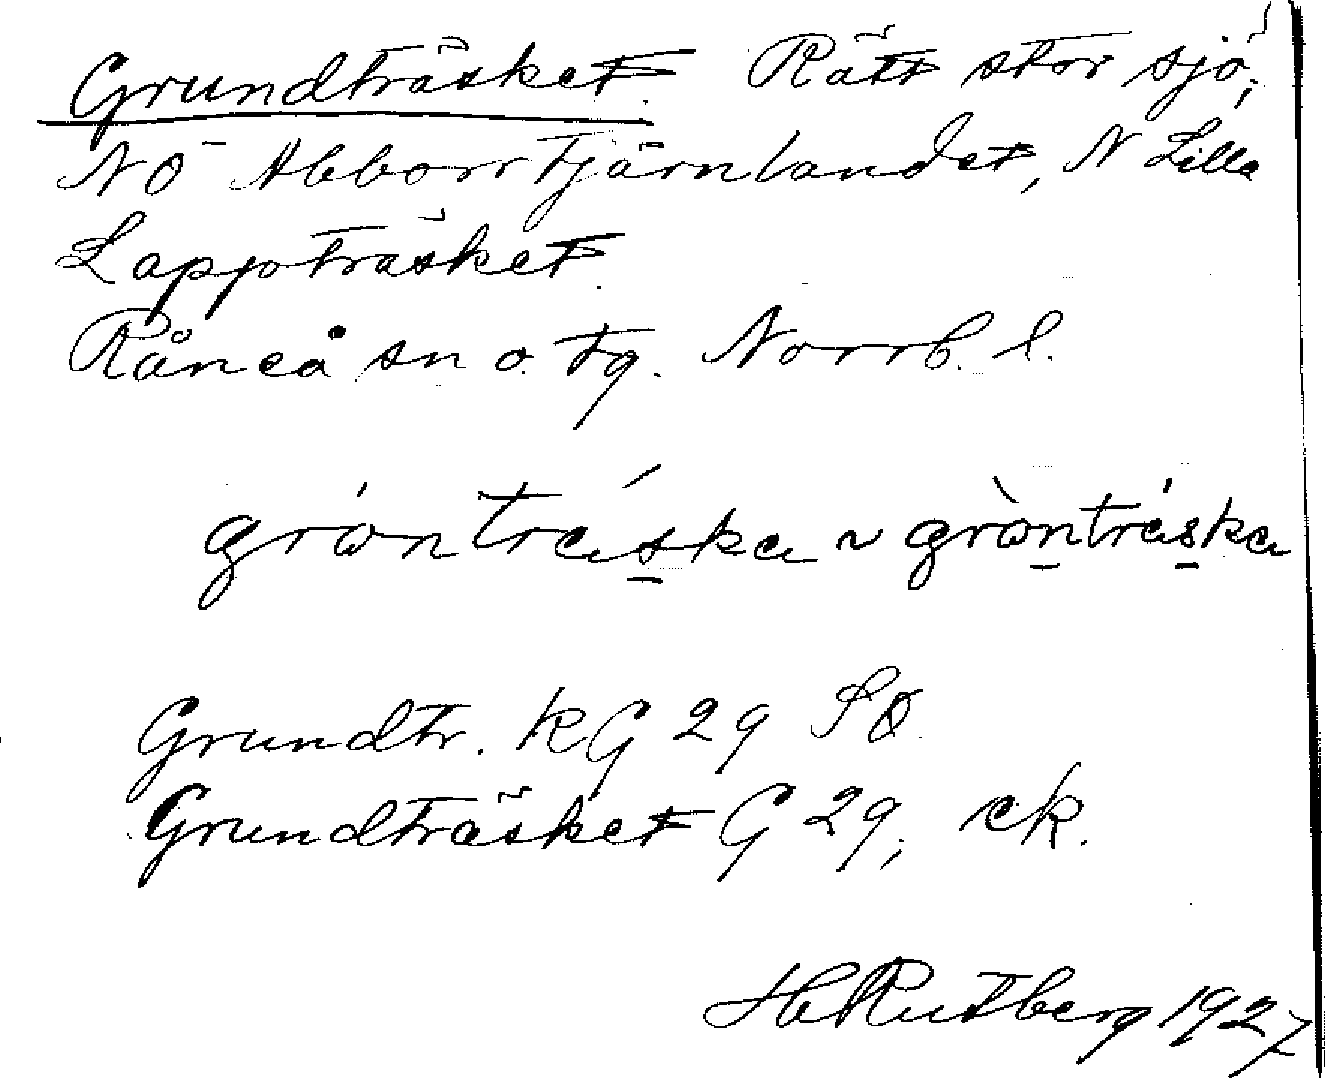 Grundträsket. Rätt stor sjö,
NÖ Abborrtjärnlandet, N Lilla
Lappträsket.
Råneå sn o. tg. Norrb. l.
gròntrǽska ~ gròntrǽska
Grundtr. KG 29 SO.
Grundträsket G 29, ek.
H Rutberg 1927